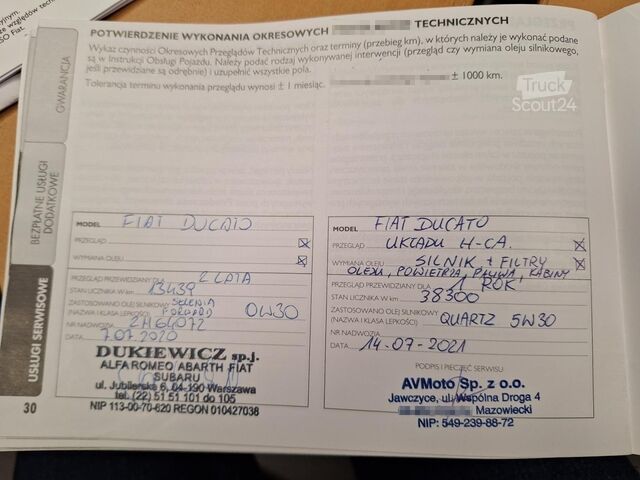 zględów tech
SO Fiat.
POTWIERDZENIE WYKONANIA OKRESOWYCH TECHNICZNYCH
Wykaz czynności Okresowych Przeglądów Technicznych oraz terminy (przebieg km), w których należy je wykonać podane
są w Instrukcji Obsługi Pojazdu. Należy podać rodzaj wykonywanej interwencji (przegląd czy wymiana oleju silnikowego,
jeśli przewidziane są odrębnie) i uzupełnić wszystkie pola.
Tolerancja terminu wykonania przeglądu wynosi ± 1 miesiąc. ± 1000 km.
Truck
Scout24
GWARANCJA
BEZPŁATNE USŁUGI
DODATKOWE
USŁUGI SERWISOWE
30
MODEL FIAT DUCATO
PRZEGLĄD
WYMIANA OLEJU
PRZEGLĄD PRZEWIDZIANY DLA 2 LATA
STAN LICZNIKA W km 13439
ZASTOSOWANO OLEJ SILNIKOWY SELENIA
(NAZWA I KLASA LEPKOŚCI) FORWARD 0W30
NR NADWOZIA 2H64072
DATA 7.07.2020
DUKIEWICZ sp.j.
ALFA ROMEO ABARTH FIAT
SUBARU
ul. Jubilerska 6, 04-190 Warszawa
tel. (22) 51 51 101 do 105
NIP 113-00-70-620 REGON 010427038
MODEL FIAT DUCATO
PRZEGLĄD UKŁADU H-CA.
WYMIANA OLEJU SILNIK + FILTRY
OLEJU, POWIETRZA, PALIWA, KABINY
PRZEGLĄD PRZEWIDZIANY DLA 1 ROK
STAN LICZNIKA W km 38300
ZASTOSOWANO OLEJ SILNIKOWY
(NAZWA I KLASA LEPKOŚCI) QUARTZ 5W30
NR NADWOZIA
DATA 14-07-2021
PODPIS I PIECZĘĆ SERWISU
AVMoto Sp. z o.o.
Jawczyce, ul. Wspólna Droga 4
Mazowiecki
NIP: 549-239-88-72